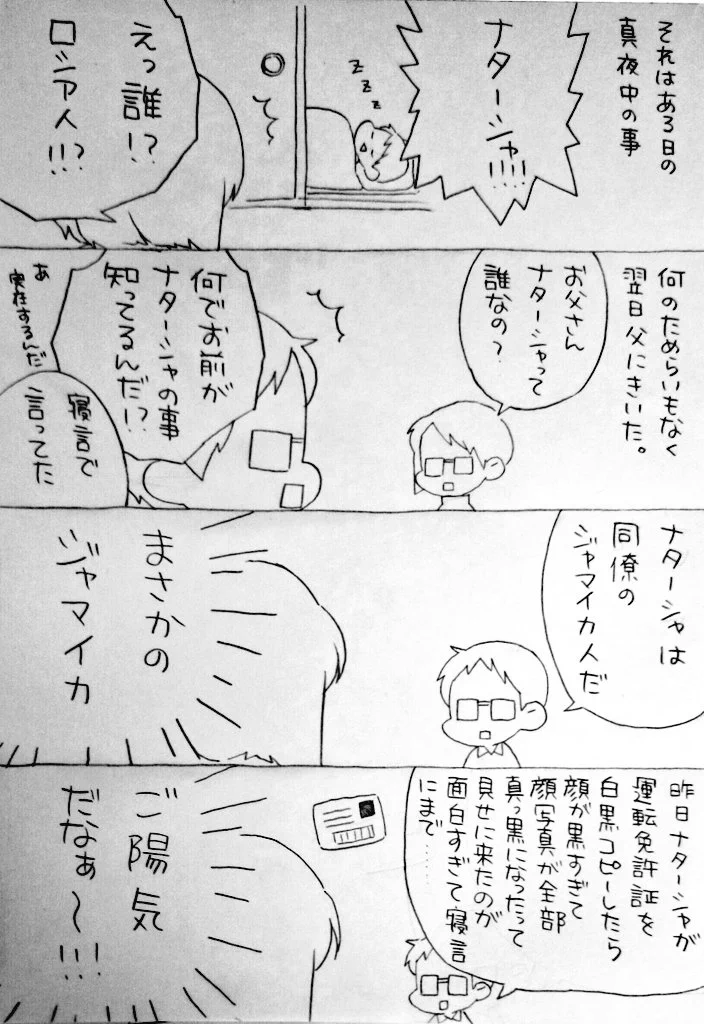 それはある日の
真夜中の事
ナターシャ!!!!
z z z
えっ誰!?
ロシア人!!!?
何のためらいもなく
翌日父にきいた。
お父さん
ナターシャって
誰なの?
何でお前が
ナターシャの事
知ってるんだ!?
寝言で
言ってた
あ
実在するんだ
ナターシャは
同僚の
ジャマイカ人だ
まさかの
ジャマイカ
昨日ナターシャが
運転免許証を
白黒コピーしたら
顔が黒すぎて
顔写真が全部
真っ黒になったって
見せに来たのが
面白すぎて寝言
にまで……
ご陽気
だなぁ〜!!!